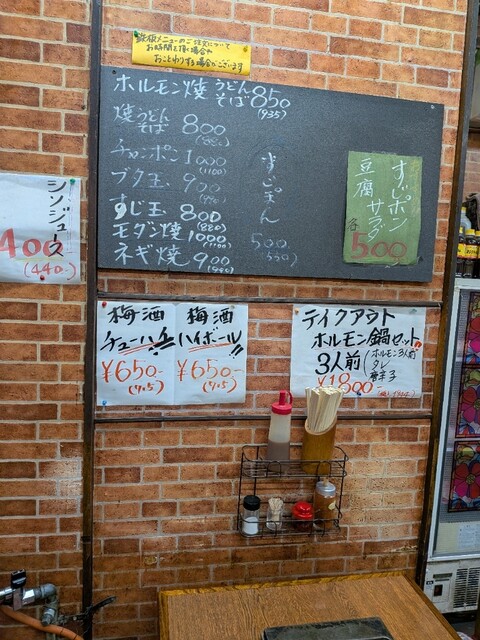 鉄板メニューのご注文について
お時間を頂く場合や
おことわりする場合がございます
ホルモン焼うどん
そば850
(935)
焼うどん
そば 800
(880)
チャンポン 1000
(1100)
ブタ玉 900
(990)
すじ玉 800
(880)
モダン焼 1000
(1100)
ネギ焼 900
(990)
すじポン
500
(550)
すじポン
豆腐サラダ
各500
ジンジュース
400
(440-)
梅酒
チューハイ
¥650-
(715)
梅酒
ハイボール!!
¥650-
(715)
テイクアウト
ホルモン鍋セット!!
3人前
ホルモン3人前
タレ
唐辛子
¥1800